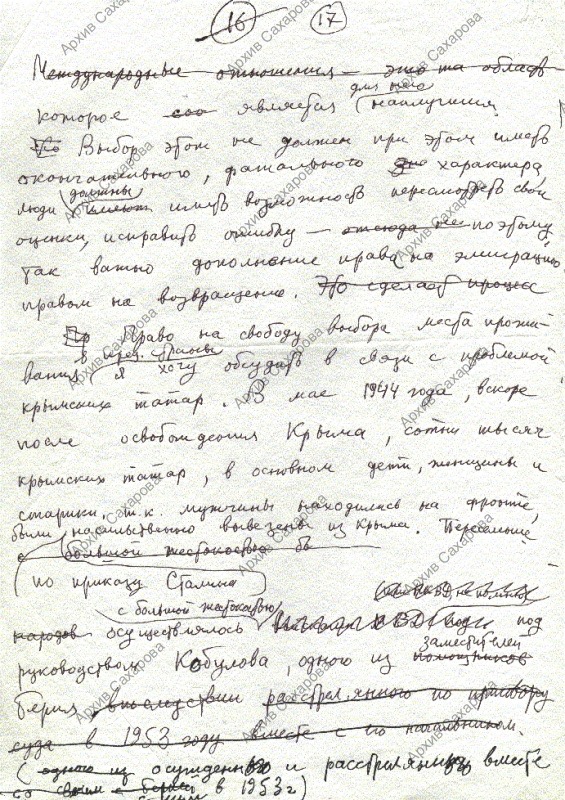 16 17
Международные отношения — это та область
для него
которое является наилучшим.
Выбор этот не должен при этом иметь
окончательного, фатального характера,
должны
люди имеют иметь возможность пересмотреть свои
оценки, исправить ошибку — отсюда поэтому
так важно дополнение права на эмиграцию
правом на возвращение. Это сделает процесс
Пр Право на свободу выбора места прожи-
в пред. страны
вания я хочу обсудить в связи с проблемой
крымских татар. В мае 1944 года, вскоре
после освобождения Крыма, сотни тысяч
крымских татар, в основном дети, женщины и
старики, т.к. мужчины находились на фронте,
были насильственно вывезены из Крыма. Переселение
с большой жестокостью бы
по приказу Сталина
с большой жестокостью
народов осуществлялось под
заместителей
руководством Кобулова, одного из помощников
Берия, впоследствии расстрелянного по приговору
суда в 1953 году вместе с его начальником.
(одного из осужденного и расстрелянного вместе
со своим с Берией в 1953 г)
Архив Сахарова